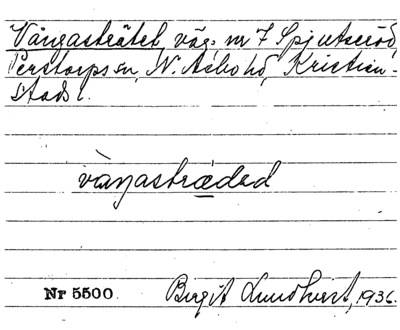 Vångasträtet, väg: nr 7 Spjutseröd,
Perstorps sn, N. Åsbo hd, Kristian-
stads l.
vàŋastræ̀dəd
Nr 5500. Birgit Lundkvist, 1936.